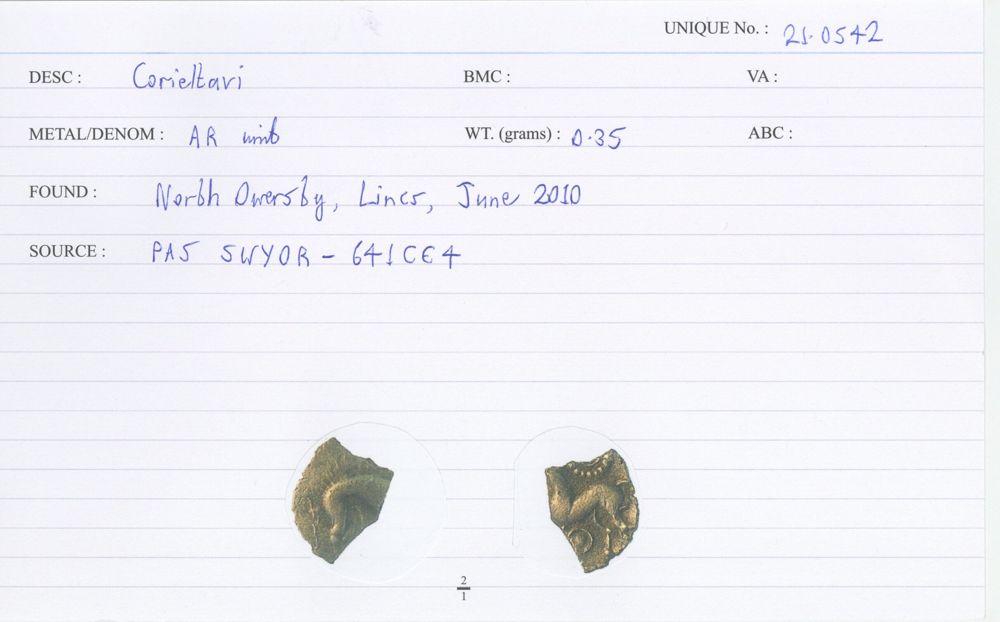 UNIQUE No. : 21.0542
DESC : Corieltavi BMC : VA :
METAL/DENOM : AR unit WT. (grams) : 0.35 ABC :
FOUND : North Owersby, Lincs, June 2010
SOURCE : PAS SWYOR - 641CE4
2
1